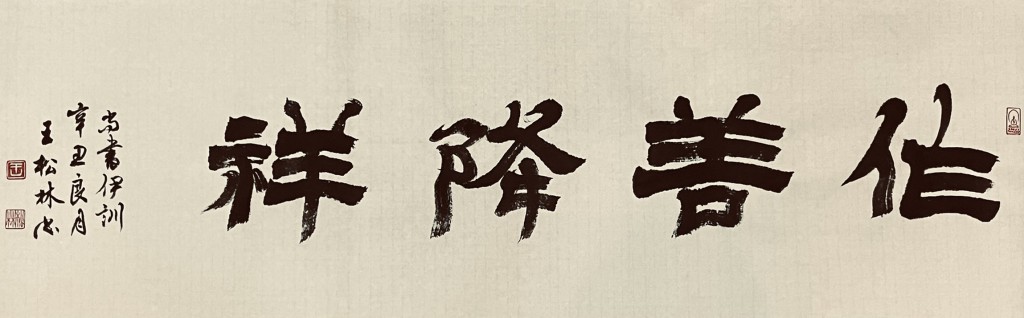 作善降祥
尚書伊訓
辛丑良月
王松林书